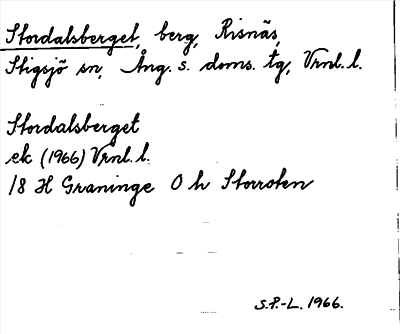 Stordalsberget, berg, Risnäs,
Stigsjö sn, Ång. s. doms. tg, Vrnl. l.
Stordalsberget
ek (1966) Vrnl. l.
18 H Graninge O h Storroten
S.P.-L. 1966.